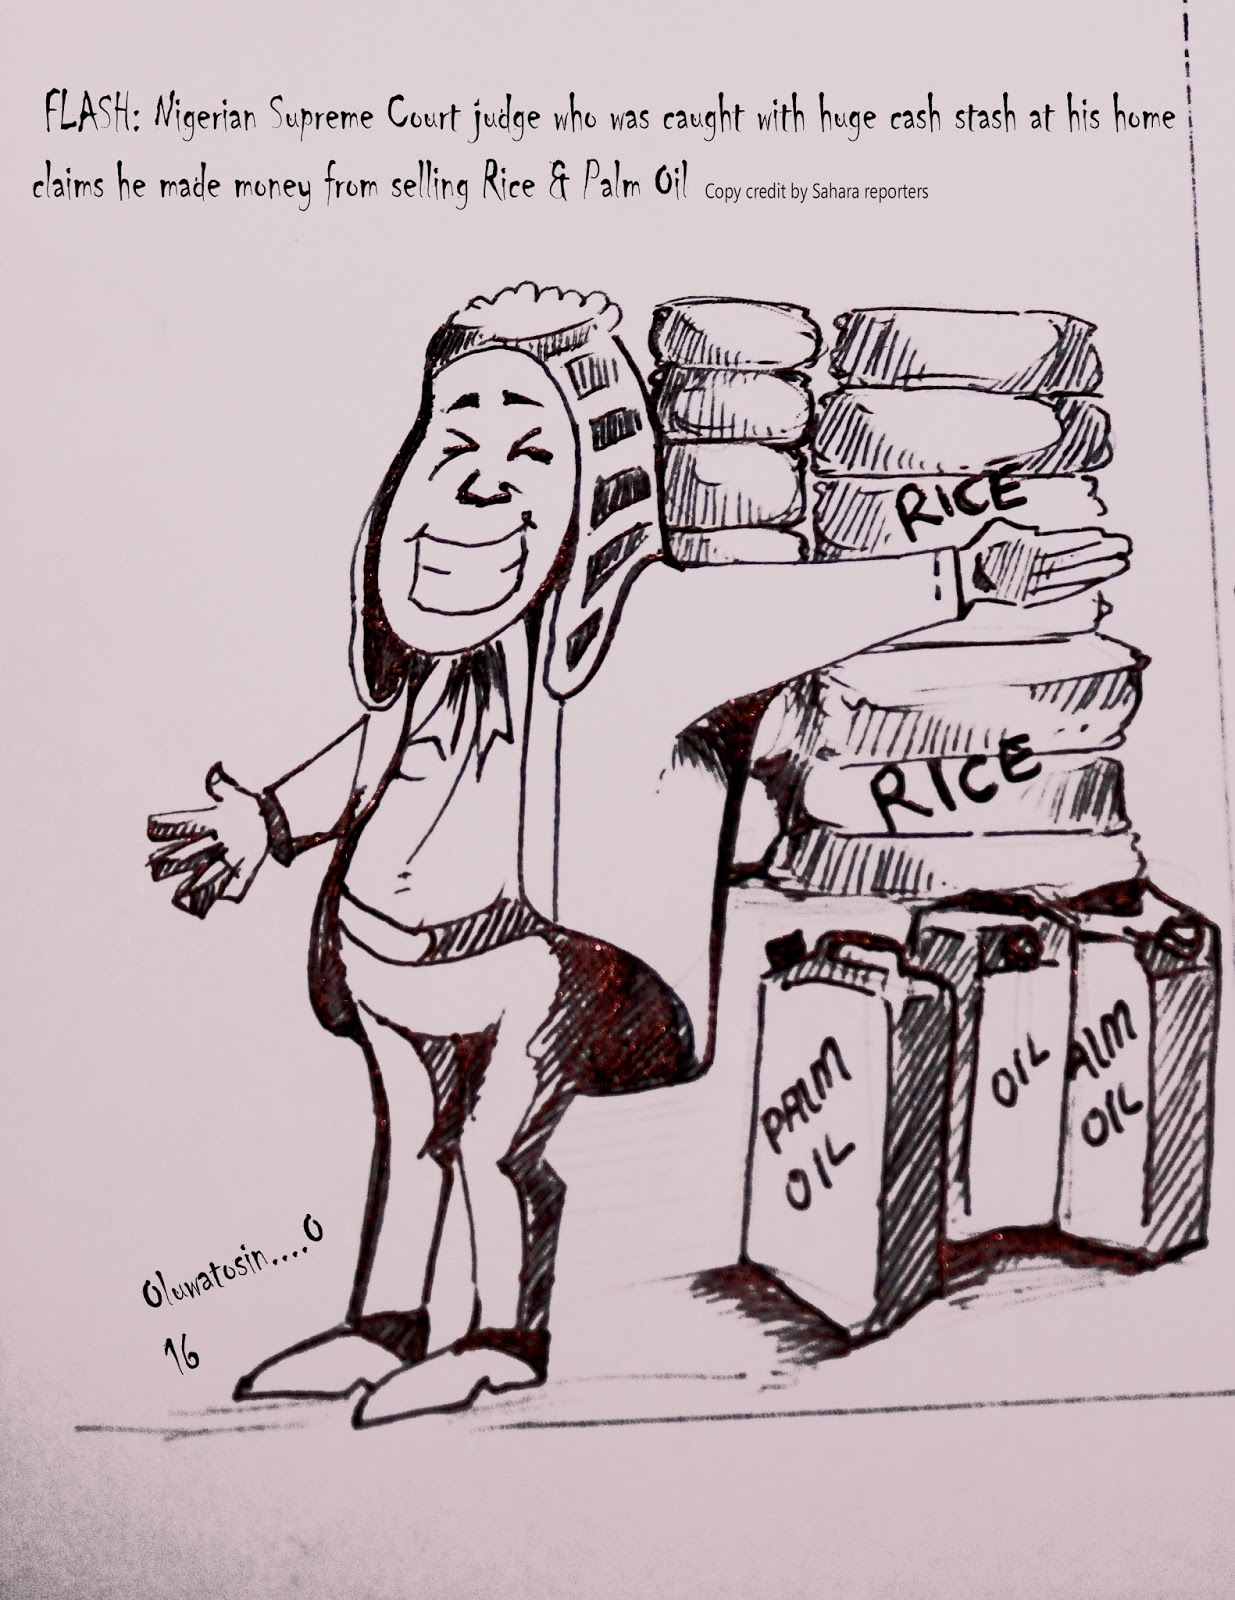 FLASH: Nigerian Supreme Court judge who was caught with huge cash stash at his home
claims he made money from selling Rice & Palm Oil Copy credit by Sahara reporters
RICE
RICE
PALM
OIL
OIL
ALM
OIL
Oluwatosin....O
16